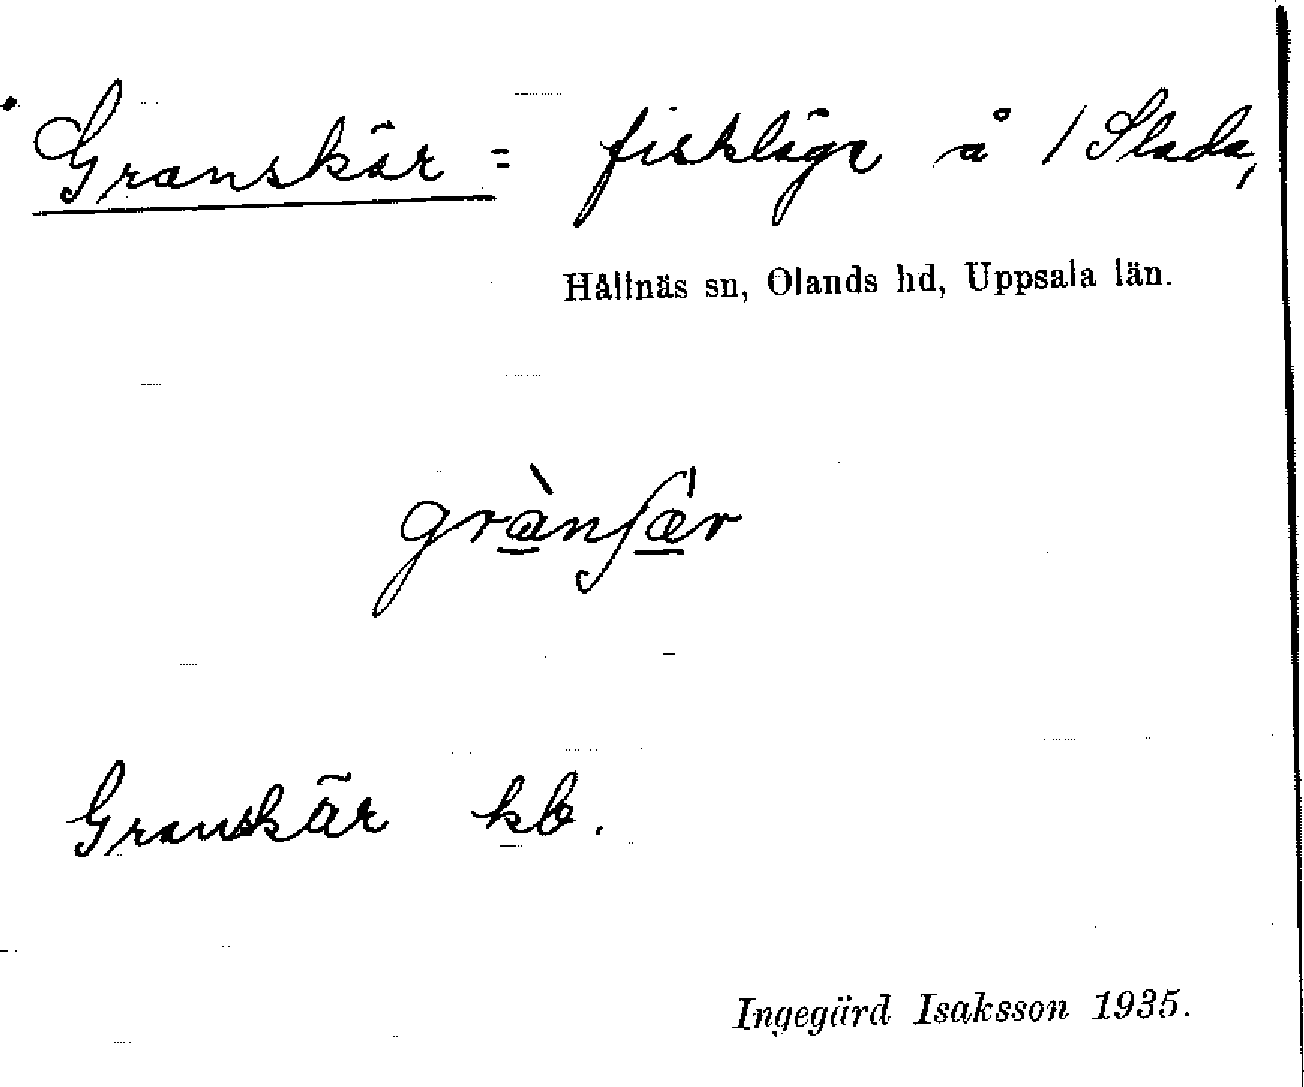 Granskär = fiskläge å /Slada,
Hållnäs sn, Olands hd, Uppsala län.
grànʃǽr
Granskär kb.
Ingegärd Isaksson 1935.